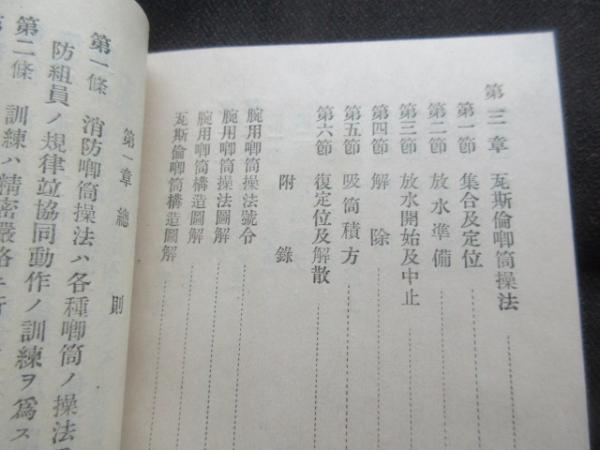 第三章 瓦斯倫喞筒操法
第一節 集合及定位
第二節 放水準備
第三節 放水開始及中止
第四節 解除
第五節 吸筒積方
第六節 復定位及解散
附錄
腕用喞筒操法號令
腕用喞筒操法圖解
腕用喞筒構造圖解
瓦斯倫喞筒構造圖解
第一章 總則
第一條 消防喞筒操法ハ各種喞筒ノ操法
防組員ノ規律竝協同動作ノ訓練ヲ爲ス
第二條 訓練ハ精密嚴格ニ